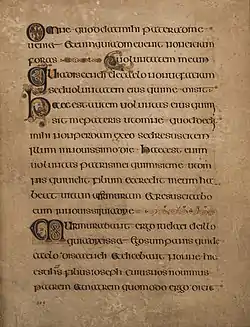 Omne quod dat mihi pater ad me
ueniet et eum qui uenit ad me non eiciam
foras uoluntatem meam
quia discendi de caelo non ut faciam
sed uoluntatem eius qui me missit
Haec est autem uoluntas eius qui mi
sit me patris ut omne quod dedit
mihi non perdam ex eo sed resuscitem
illum in nouissimo die Haec est enim
uoluntas patris mei qui misit me ut omnis
qui uidit filium et credit in eum ha
beat uitam aeternam et resuscitabo
eum in nouissimo die
Murmurabant ergo iudaei de illo
quia dixisset ego sum panis qui de
caelo discendi et dicebant nonne hic
est filius ioseph cuius nos nouimus
patrem et matrem quomodo ergo dicit